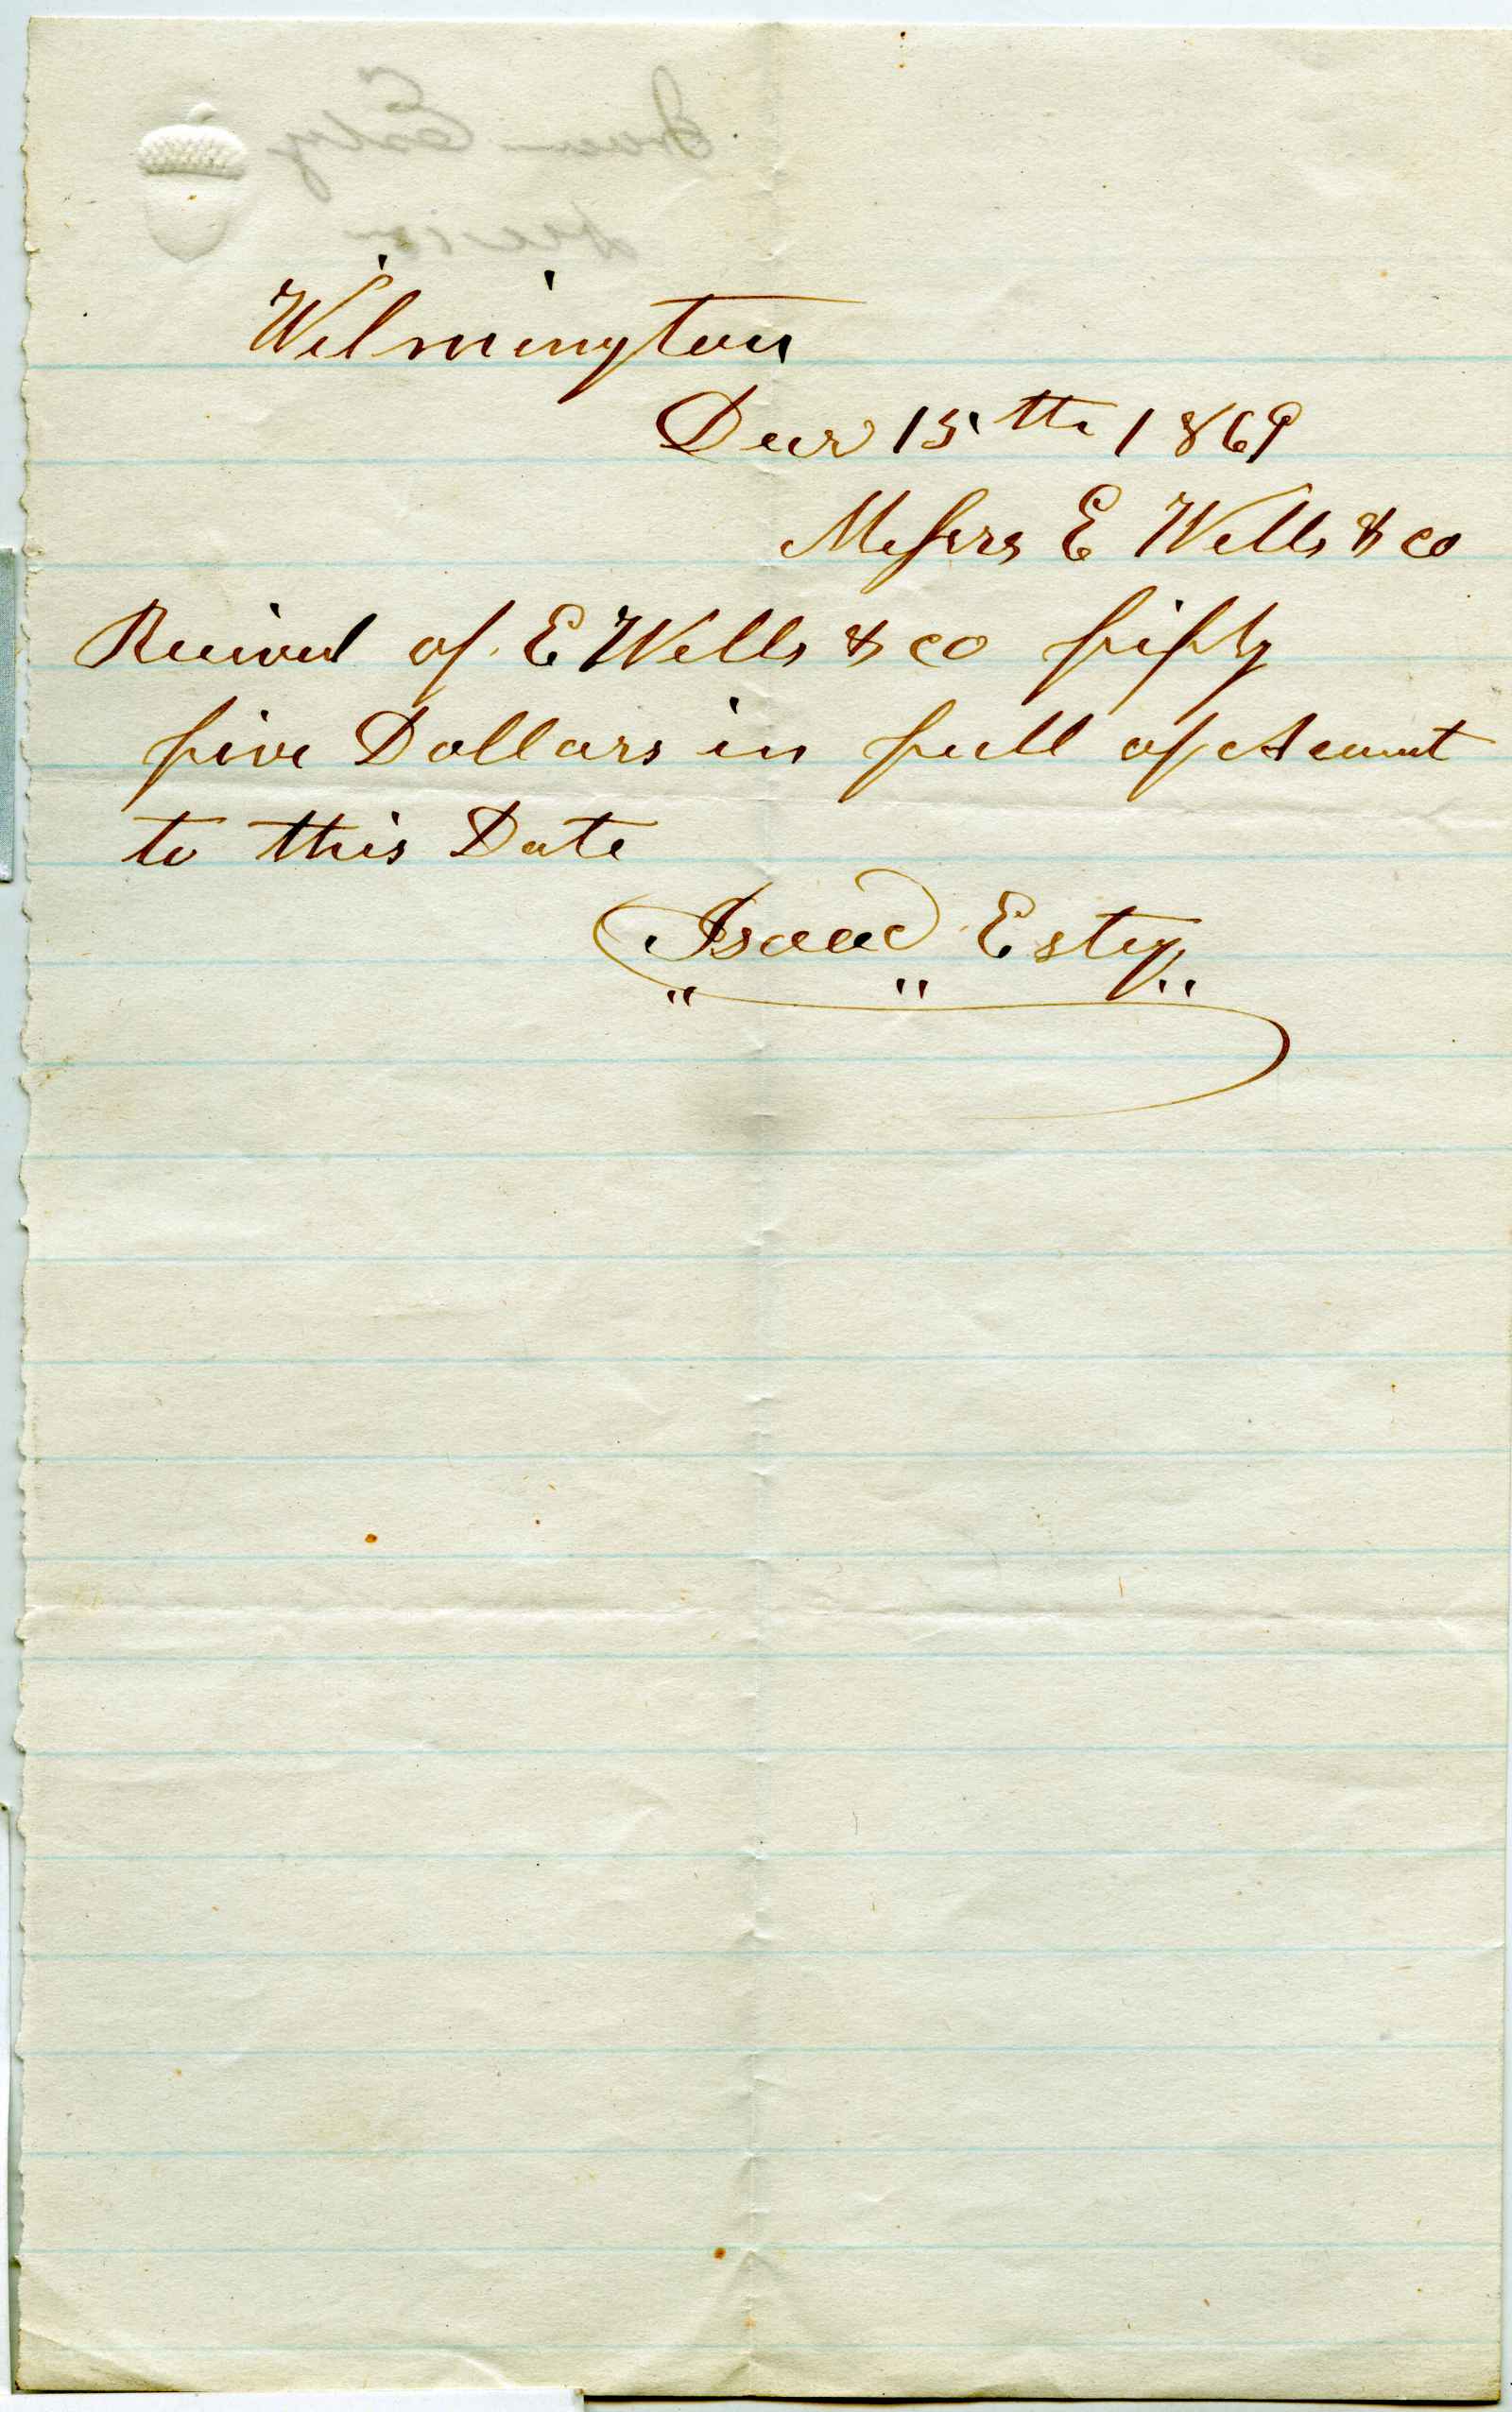 Wilmington
Decr 15th 1869
Messrs E Wells & co
Received of E Wells & co fifty
five Dollars in full of Acount
to this Date
Isaac Estey